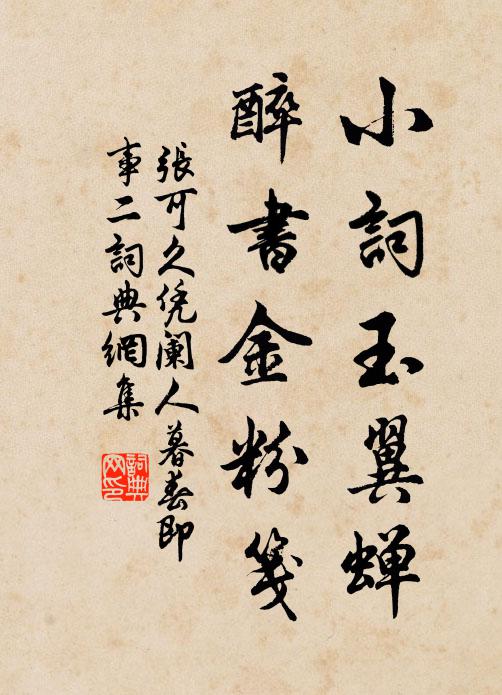 小詞玉翼蝉
醉書金粉箋
張可久凭闌人暮春即
事二詞典網集
詞典网印